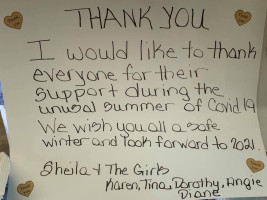 THANK YOU
I would like to thank
everyone for their
support during the
unusal summer of Covid 19.
We wish you all a safe
winter and look forward to 2021.
Sheila & The Girls
Karen, Tina, Dorothy, Angie
Diane